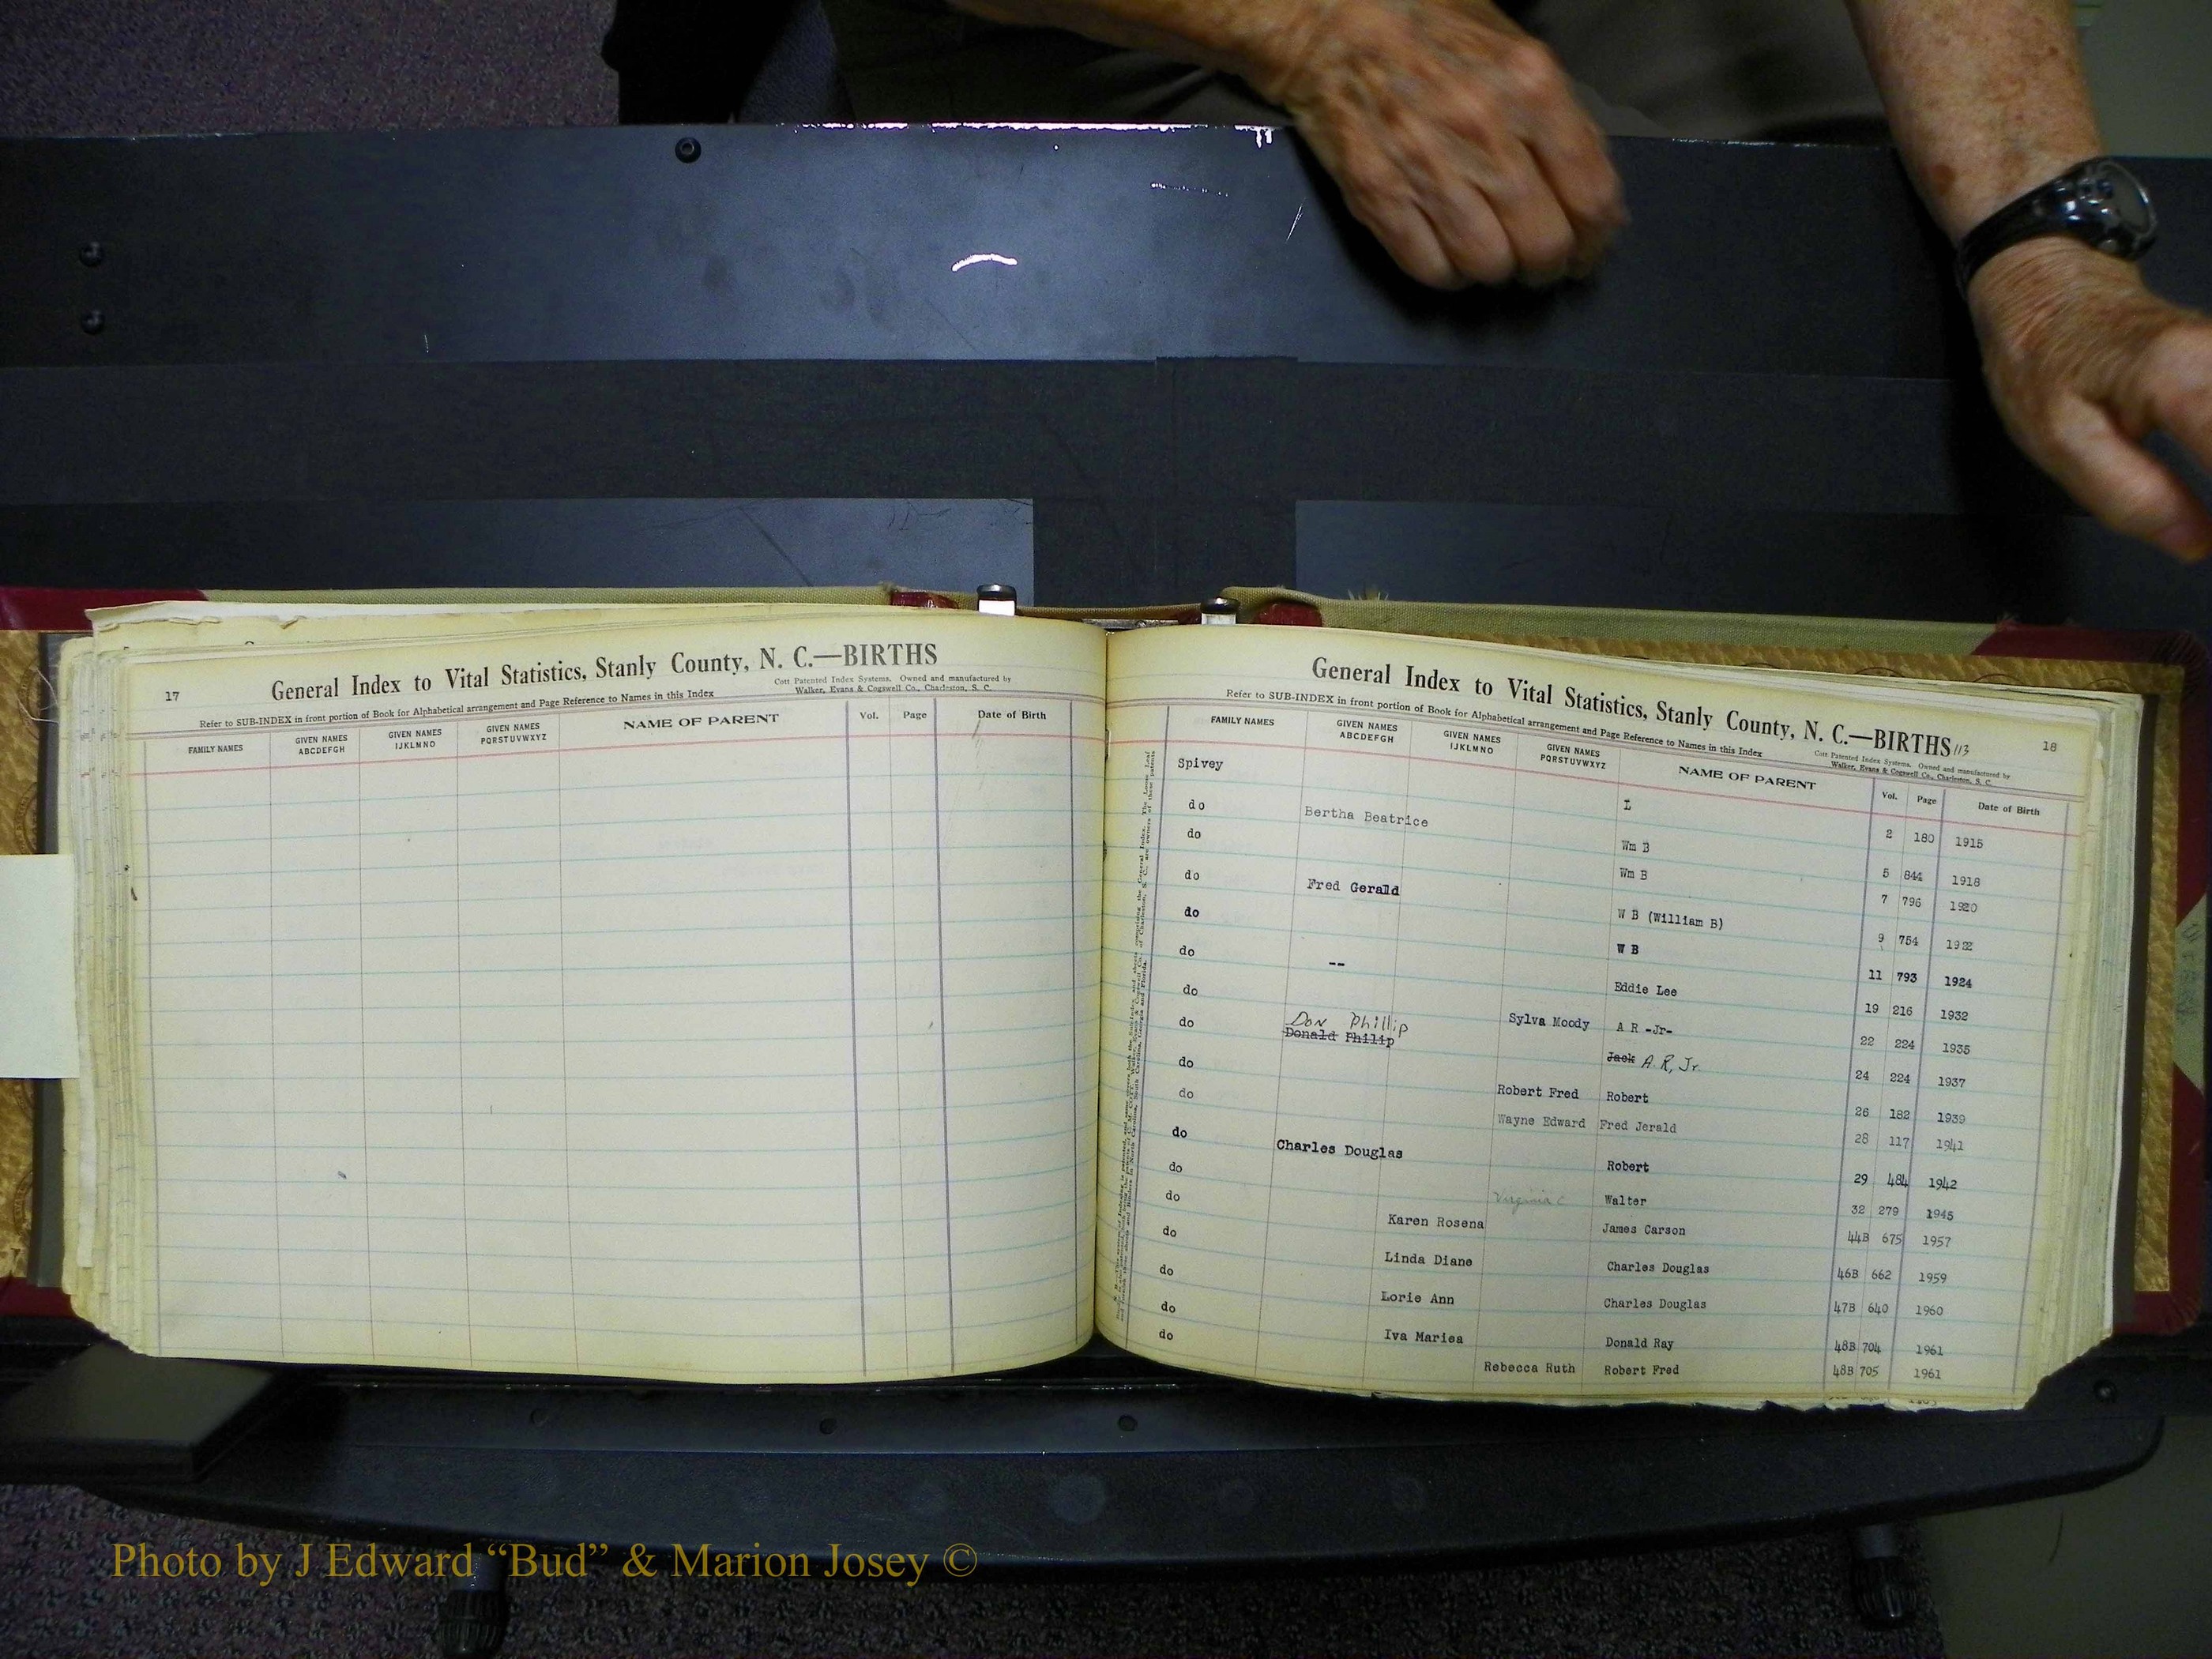 17
General Index to Vital Statistics, Stanly County, N. C.—BIRTHS
Refer to SUB-INDEX in front portion of Book for Alphabetical arrangement and Page Reference to Names in this Index
Cott Patented Index Systems. Owned and manufactured by
Walker, Evans & Cogswell Co., Charleston, S. C.
FAMILY NAMES GIVEN NAMES ABCDEFGH GIVEN NAMES IJKLMNO GIVEN NAMES PQRSTUVWXYZ NAME OF PARENT Vol. Page Date of Birth
General Index to Vital Statistics, Stanly County, N. C.—BIRTHS 113
18
Refer to SUB-INDEX in front portion of Book for Alphabetical arrangement and Page Reference to Names in this Index
Cott Patented Index Systems. Owned and manufactured by
Walker, Evans & Cogswell Co., Charleston, S. C.
FAMILY NAMES GIVEN NAMES ABCDEFGH GIVEN NAMES IJKLMNO GIVEN NAMES PQRSTUVWXYZ NAME OF PARENT Vol. Page Date of Birth
Spivey L 2 180 1915
do Bertha Beatrice Wm B 5 844 1918
do Wm B 7 796 1920
do Fred Gerald W B (William B) 9 754 1922
do W B 11 793 1924
do -- Eddie Lee 19 216 1932
do Sylva Moody A R -Jr- 22 224 1935
do Don Phillip Donald Philip Jack A. R, Jr. 24 224 1937
do Robert Fred Robert 26 182 1939
do Wayne Edward Fred Jerald 28 117 1941
do Charles Douglas Robert 29 484 1942
do Virginia C Walter 32 279 1945
do Karen Rosena James Carson 44B 675 1957
do Linda Diane Charles Douglas 46B 662 1959
do Lorie Ann Charles Douglas 47B 640 1960
do Iva Mariea Donald Ray 48B 704 1961
do Rebecca Ruth Robert Fred 48B 705 1961
Photo by J Edward “Bud” & Marion Josey ©